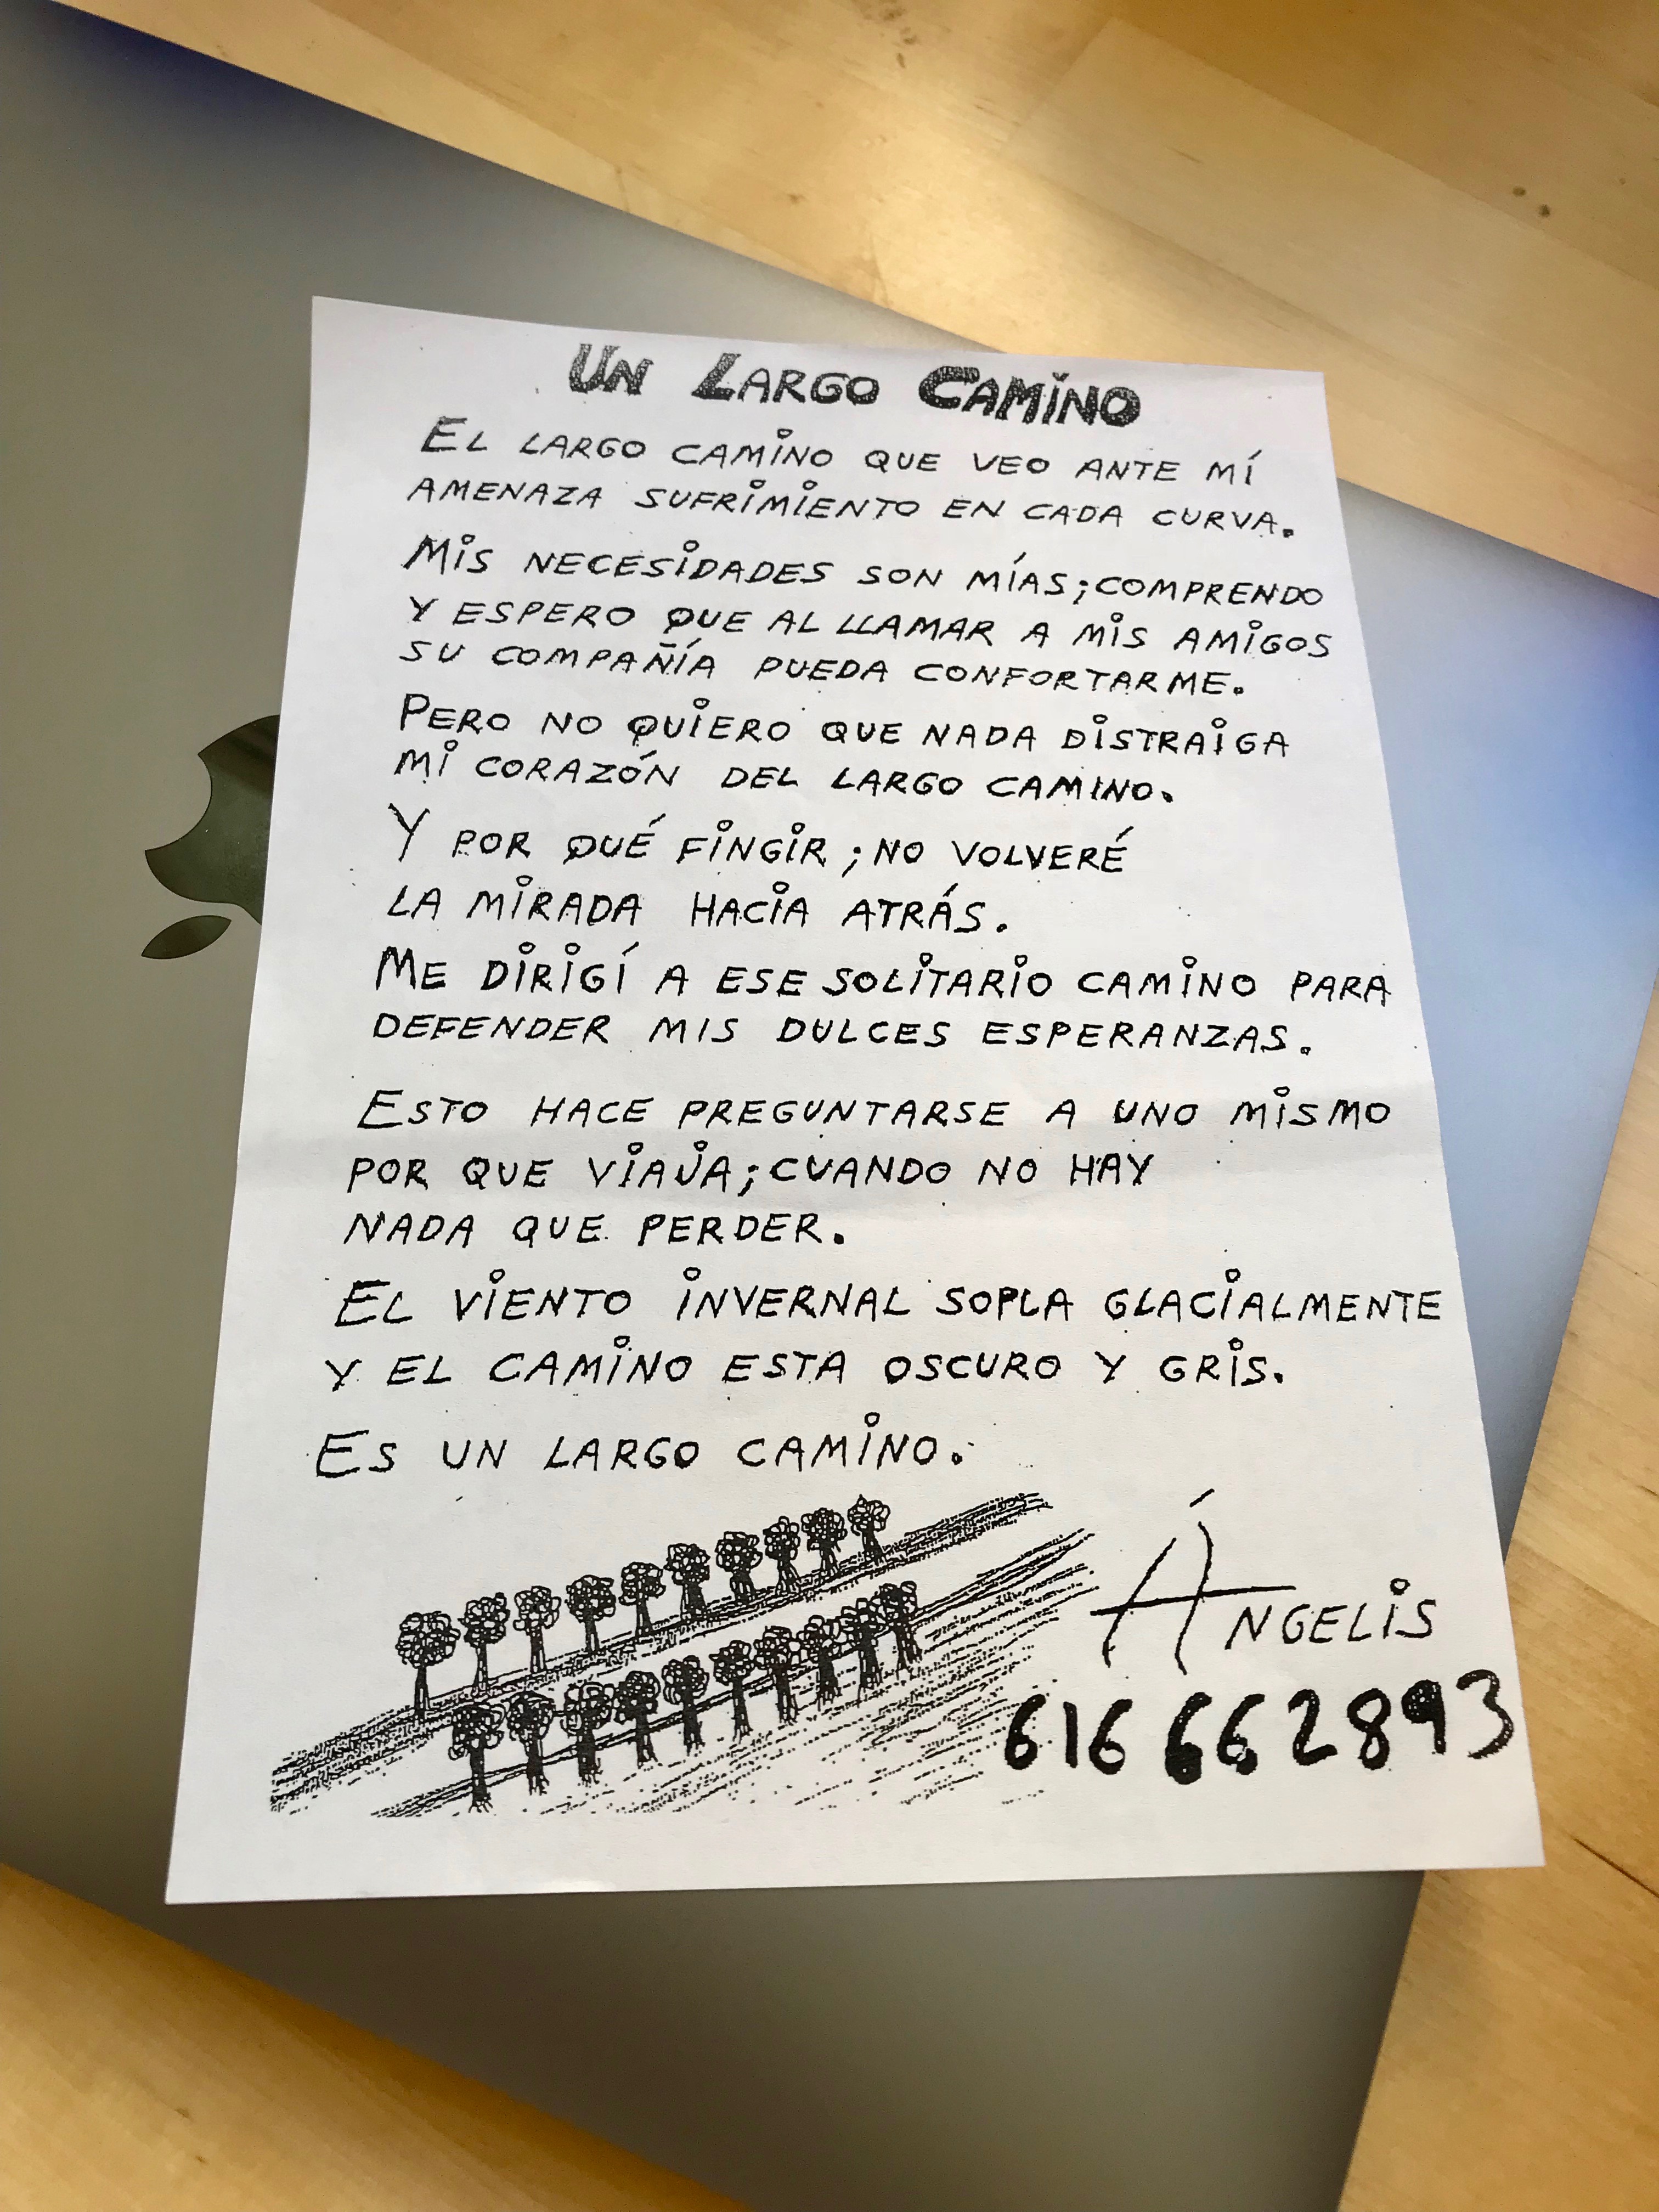 UN LARGO CAMINO
EL LARGO CAMINO QUE VEO ANTE MÍ
AMENAZA SUFRIMIENTO EN CADA CURVA.
MIS NECESIDADES SON MÍAS; COMPRENDO
Y ESPERO QUE AL LLAMAR A MIS AMIGOS
SU COMPAÑÍA PUEDA CONFORTARME.
PERO NO QUIERO QUE NADA DISTRAIGA
MI CORAZÓN DEL LARGO CAMINO.
Y POR QUÉ FINGIR; NO VOLVERÉ
LA MIRADA HACIA ATRÁS.
ME DIRIGÍ A ESE SOLITARIO CAMINO PARA
DEFENDER MIS DULCES ESPERANZAS.
ESTO HACE PREGUNTARSE A UNO MISMO
POR QUE VIAJA; CUANDO NO HAY
NADA QUE PERDER.
EL VIENTO INVERNAL SOPLA GLACIALMENTE
Y EL CAMINO ESTA OSCURO Y GRIS.
ES UN LARGO CAMINO.
ÁNGELIS
616 662893